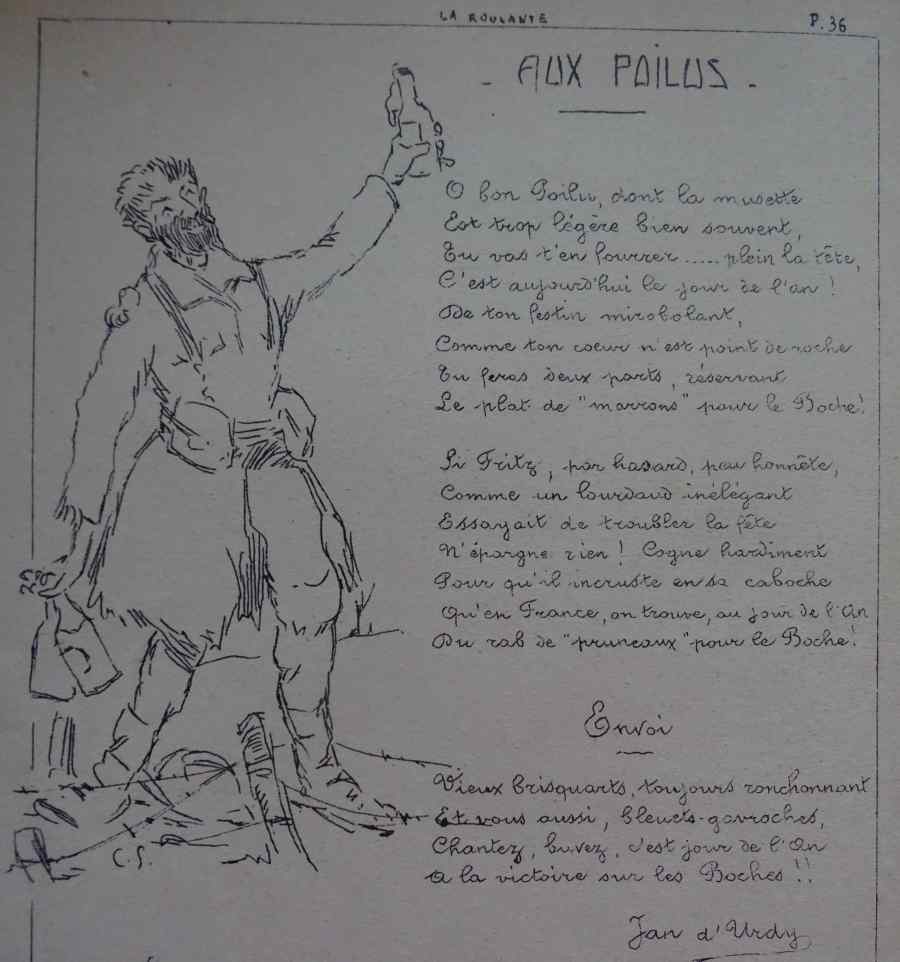 LA ROULANTE
P. 36
- AUX POILUS -
O bon Poilu, dont la musette
Est trop légère bien souvent,
Tu vas t'en fourrer ..... plein la tête,
C'est aujourd'hui le jour de l'an !
De ton festin mirobolant,
Comme ton coeur n'est point de roche
Tu feras deux parts, réservant
Le plat de "marrons" pour le Boche !
Si Fritz, par hasard, peu honnête,
Comme un lourdaud inélégant
Essayait de troubler la fête
N'épargne rien ! Cogne hardiment
Pour qu'il incruste en sa caboche
Qu'en France, on trouve, au jour de l'An
Du rab de "pruneaux" pour le Boche !
Envoi
Vieux brisquarts, toujours ronchonnant
Et vous aussi, bleuets-gavroches,
Chantez, buvez, c'est jour de l'An
A la victoire sur les Boches !!
Jan d'Urdy
C.S.